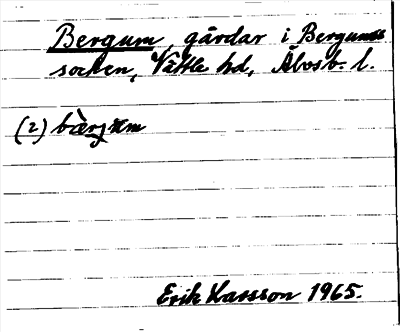 Bergum, gårdar i Bergums
socken, Vättle hd, Älvsb. l.
(2) bærjᵊm
Erik Larsson 1965.